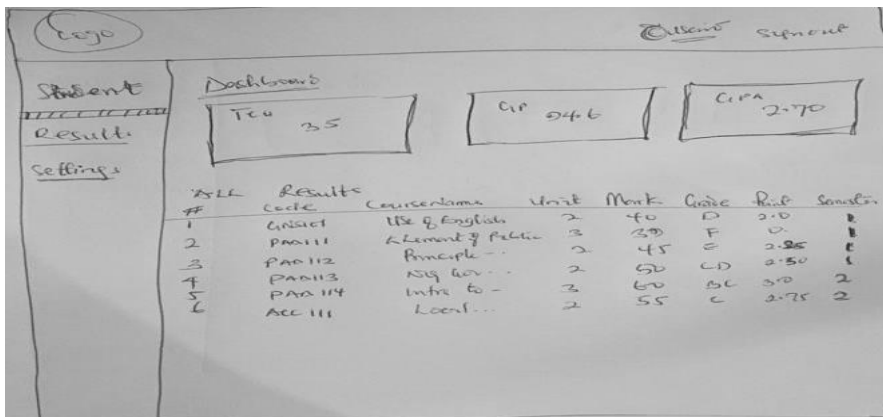 Logo
Signout
Student
Dashboard
TCU 35
GP 94.6
GPA 2.70
Result
Settings
ALL Results
# Code CourseName Unit Mark Grade Point Semester
1 Use of English 2 40 D 2.0
2 PAD111 Element of Public 3 39 F 0.
3 PAD112 Principle - - 2 45 2.25
4 PAD113 Nig Gov. . . 2 50 CD 2.50
5 PAD114 Intro to - 3 60 BC 3.0 2
6 ACC 111 Local... 2 55 C 2.75 2